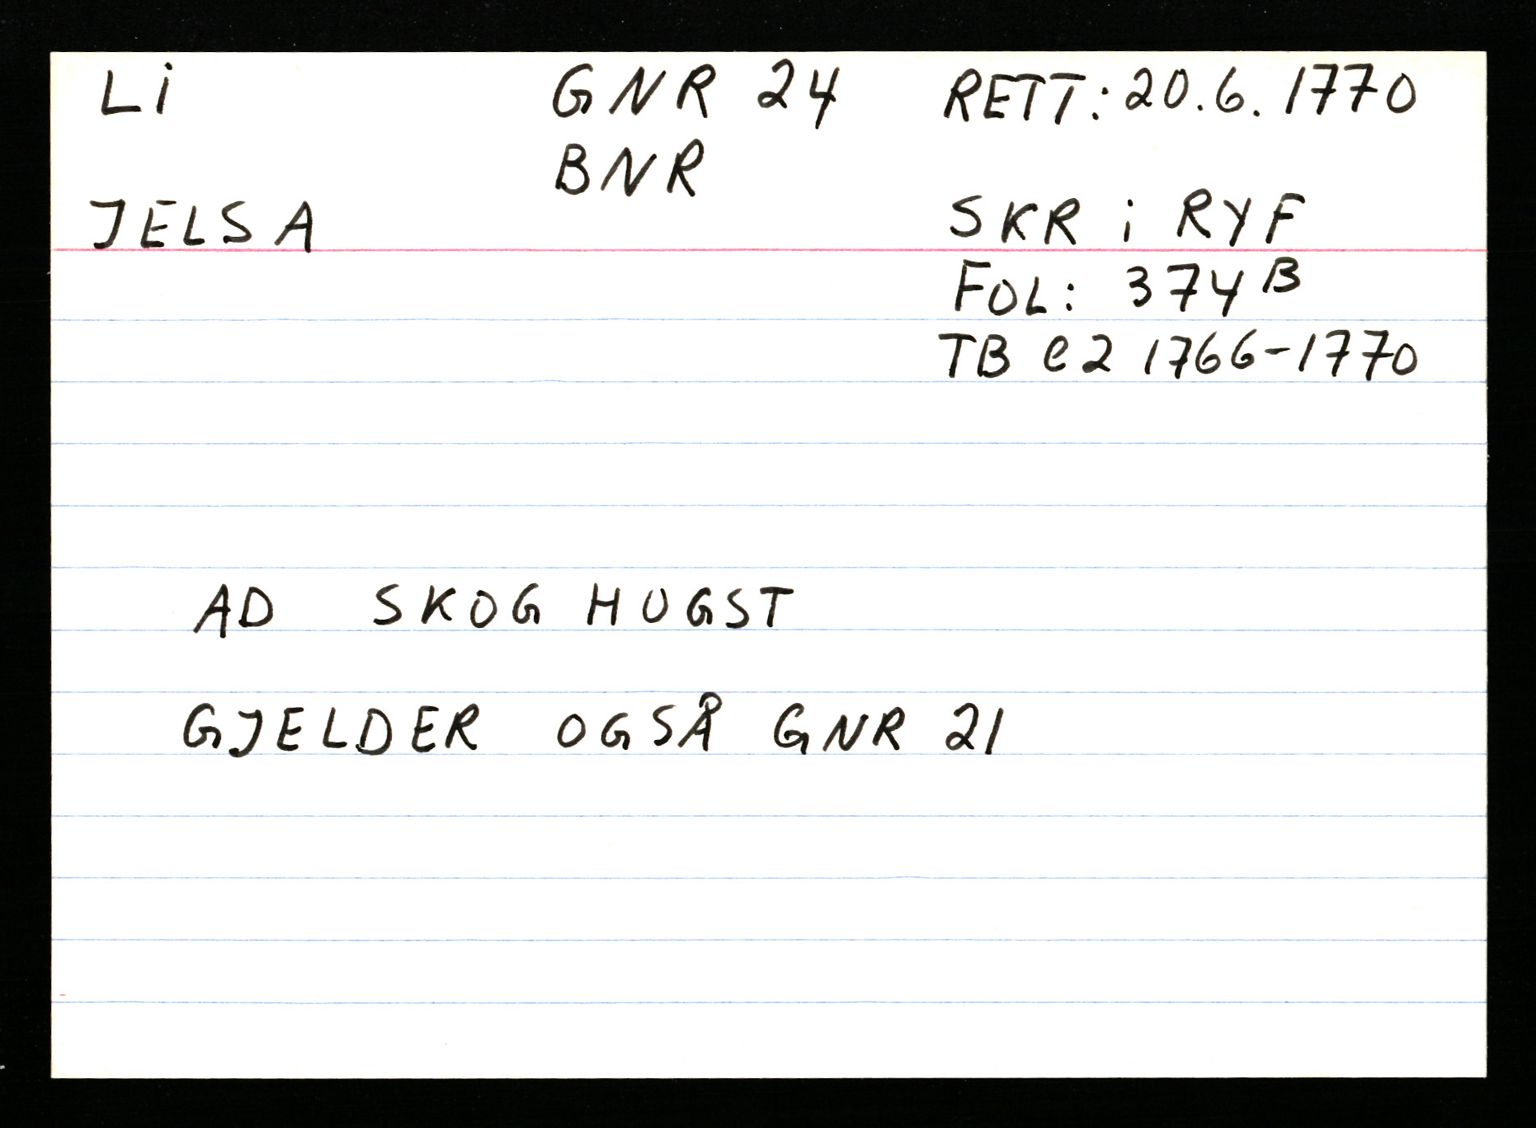 Li GNR 24 RETT: 20.6. 1770
BNR
JELSA SKR i RYF
FOL: 374 B
TB C2 1766-1770
AD SKOG HUGST
GJELDER OGSÅ GNR 21